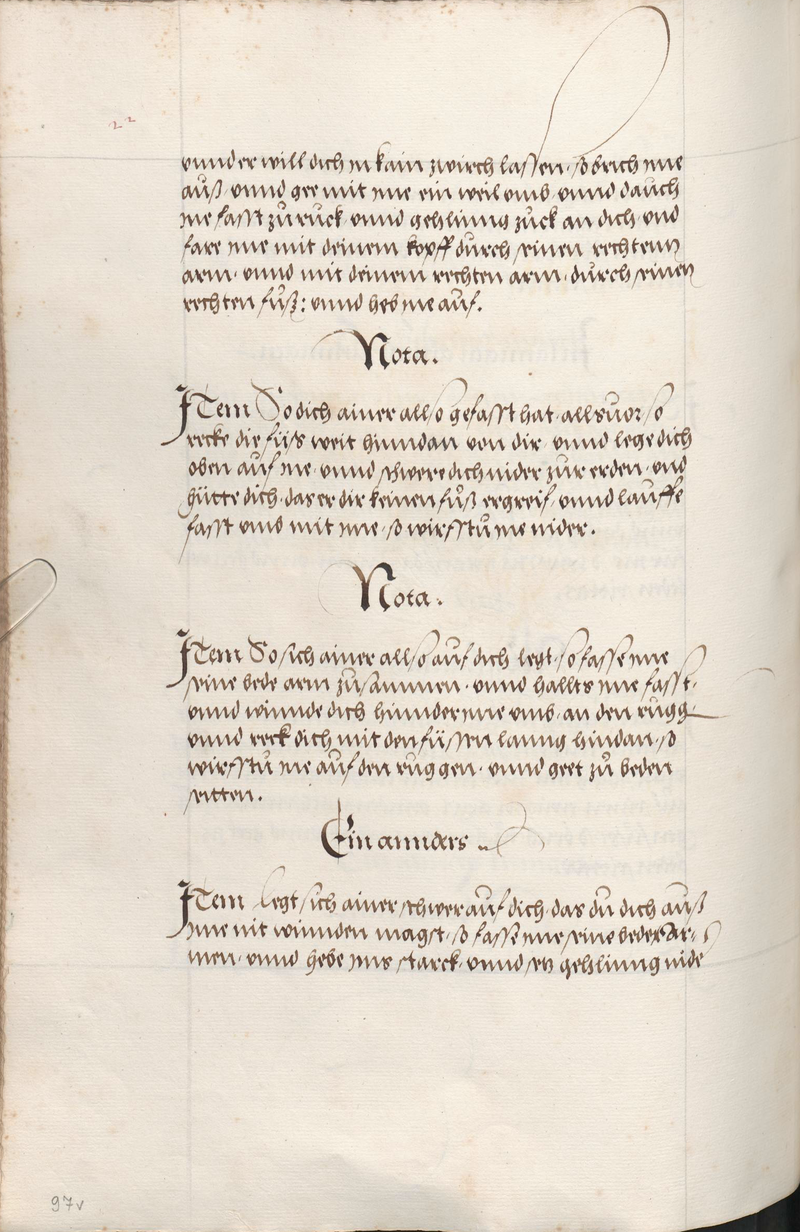 22
vnnd er will dich in kain zwirch lassen, so brich mie
auß vnnd gee mit mie ein weil vmb vnnd dauch
ine fasst zurück vnnd gehlinng zuck an dich vnd
fare mie mit deinem kopff durch seinen rechtenn
arm, vnnd mit deinem rechten arm, durch seinen
rechten fůß: vnnd heb ine auf.
Nota.
Item So dich ainer allso gefasst hat, allsuor so
recke die füs weit hinndan von dir, vnnd lege dich
oben auf ine, vnnd schwere dich nider zur erden, vnd
hütte dich, das er dir keinen fůß ergreif, vnnd lauffe
fasst vmb mit ime, so wirfstu ine nider.
Nota.
Item So sich ainer allso auf dich legt, so fasse ime
seine bede arm zusammen, vnnd hallts ime fasst,
vnnd winnde dich hinnder ime vmb, an den rugg
vnnd reck dich mit den füssen lanng hindan, so
wirfstu ine auf den ruggen, vnnd geet zů beden
seitten.
Ein annders
Item legt sich ainer schwer auf dich, das du dich auß
ime nit winnden magst, so fasse ime seine bede ar,
men, vnnd hebe ims starck, vnnd sey gehlinng nide
97v